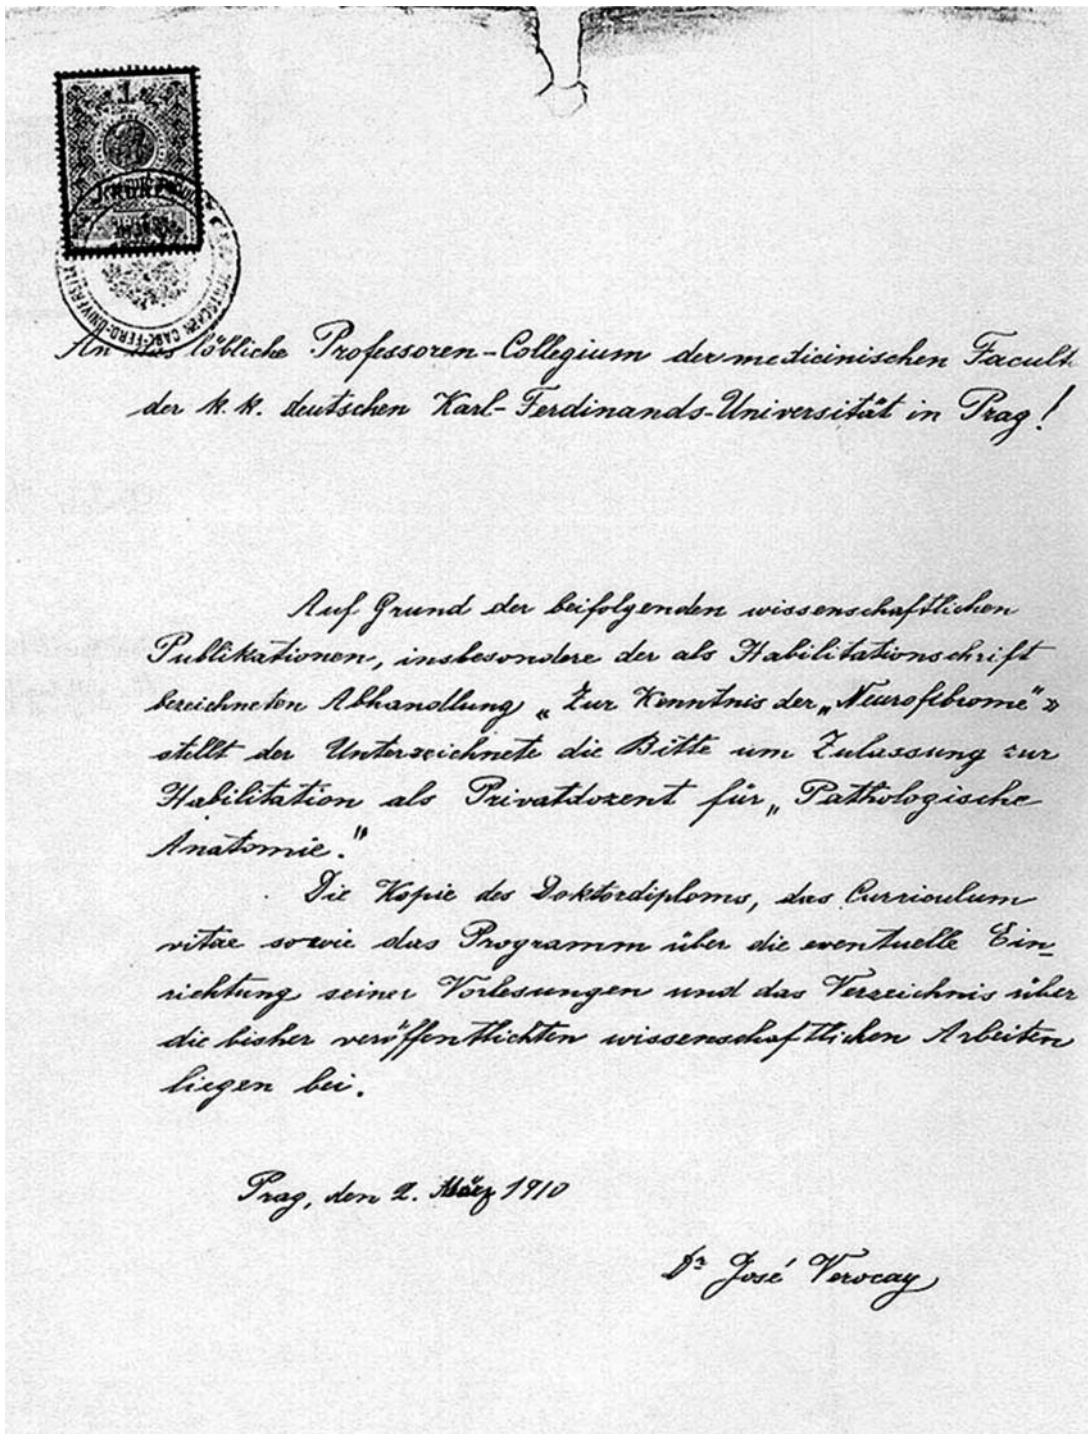 1
CARL-FERD-UNIVERSI
An das löbliche Professoren-Collegium der medicinischen Facult
der k. k. deutschen Karl-Ferdinands-Universität in Prag!
Auf Grund der beifolgenden wissenschaftlichen
Publikationen, insbesondere der als Habilitationschrift
bezeichneten Abhandlung „Zur Kenntnis der „Neurofibrome“ »
stellt der Unterzeichnete die Bitte um Zulassung zur
Habilitation als Privatdozent für „Pathologische
Anatomie."
Die Kopie des Doktordiploms, das Curriculum
vitae sowie das Programm über die eventuelle Ein-
richtung seiner Vorlesungen und das Verzeichnis über
die bisher veröffentlichten wissenschaftlichen Arbeiten
liegen bei.
Prag, den 2. März 1910
Dr José Verocay